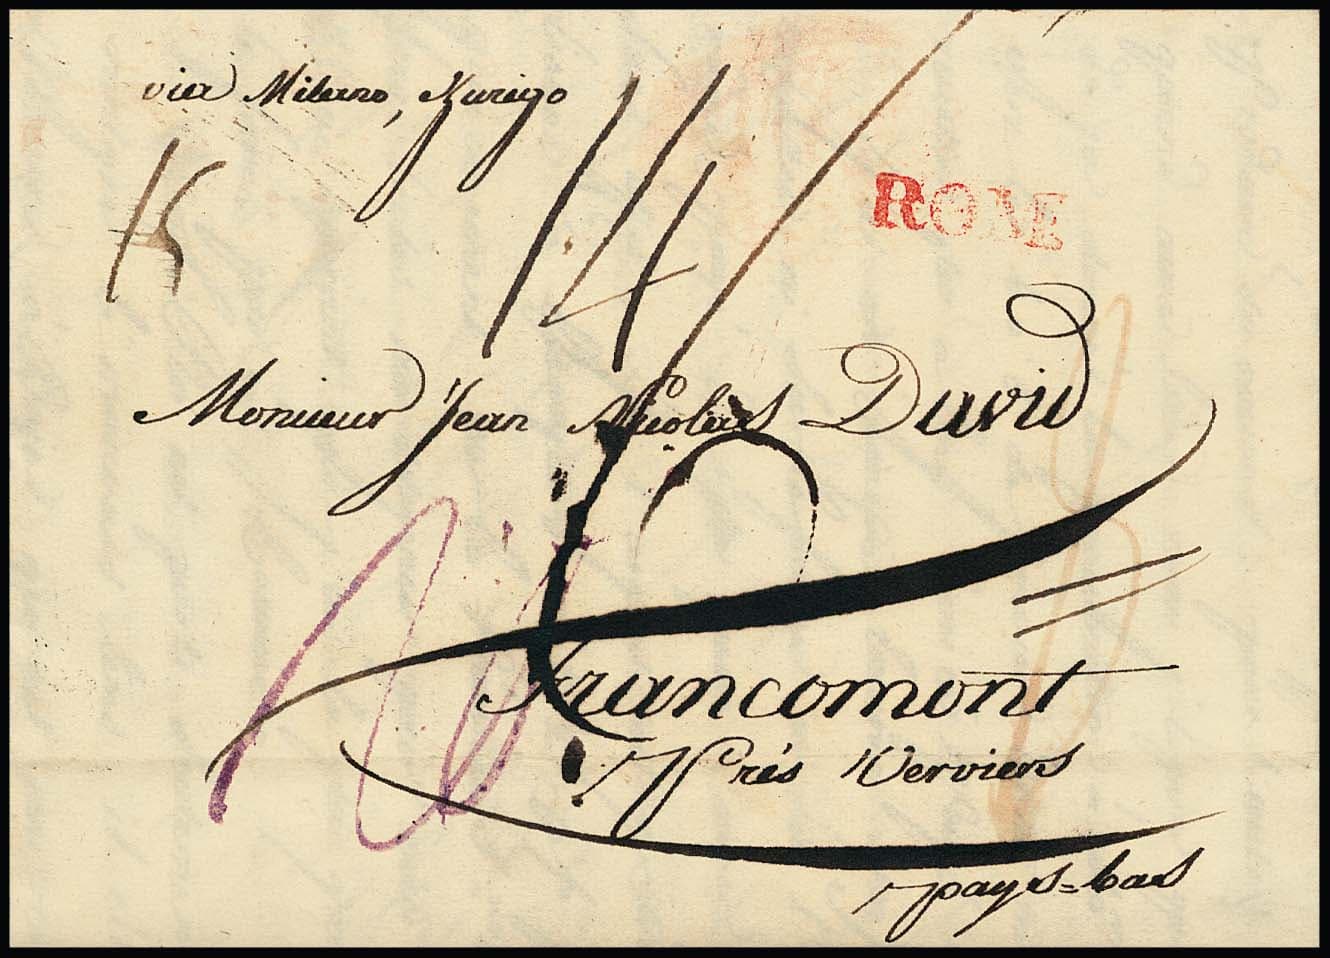 via Milano, Zurigo
ROME
15
14
Monsieur Jean Nicolas David
Francomont
Près Verviers
pays=bas